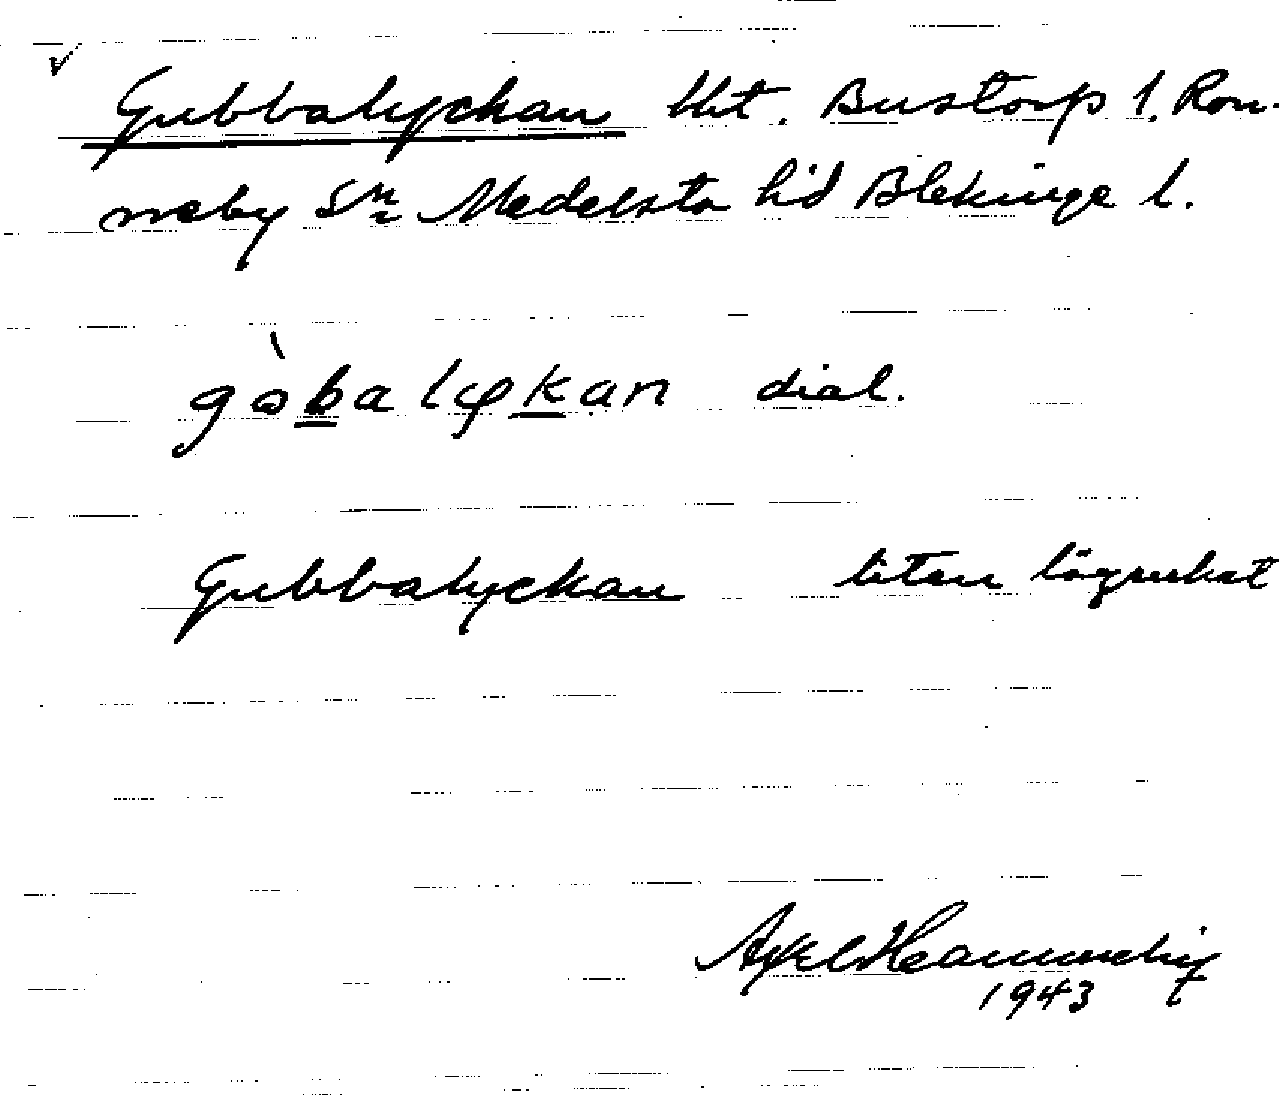 √ Gubbalyckan tht. Bustorp 1. Ron-
neby Sn Medelsta h'd Blekinge l.
gòbalykan dial.
Gubbalyckan liten lägenhet
Axel
1943